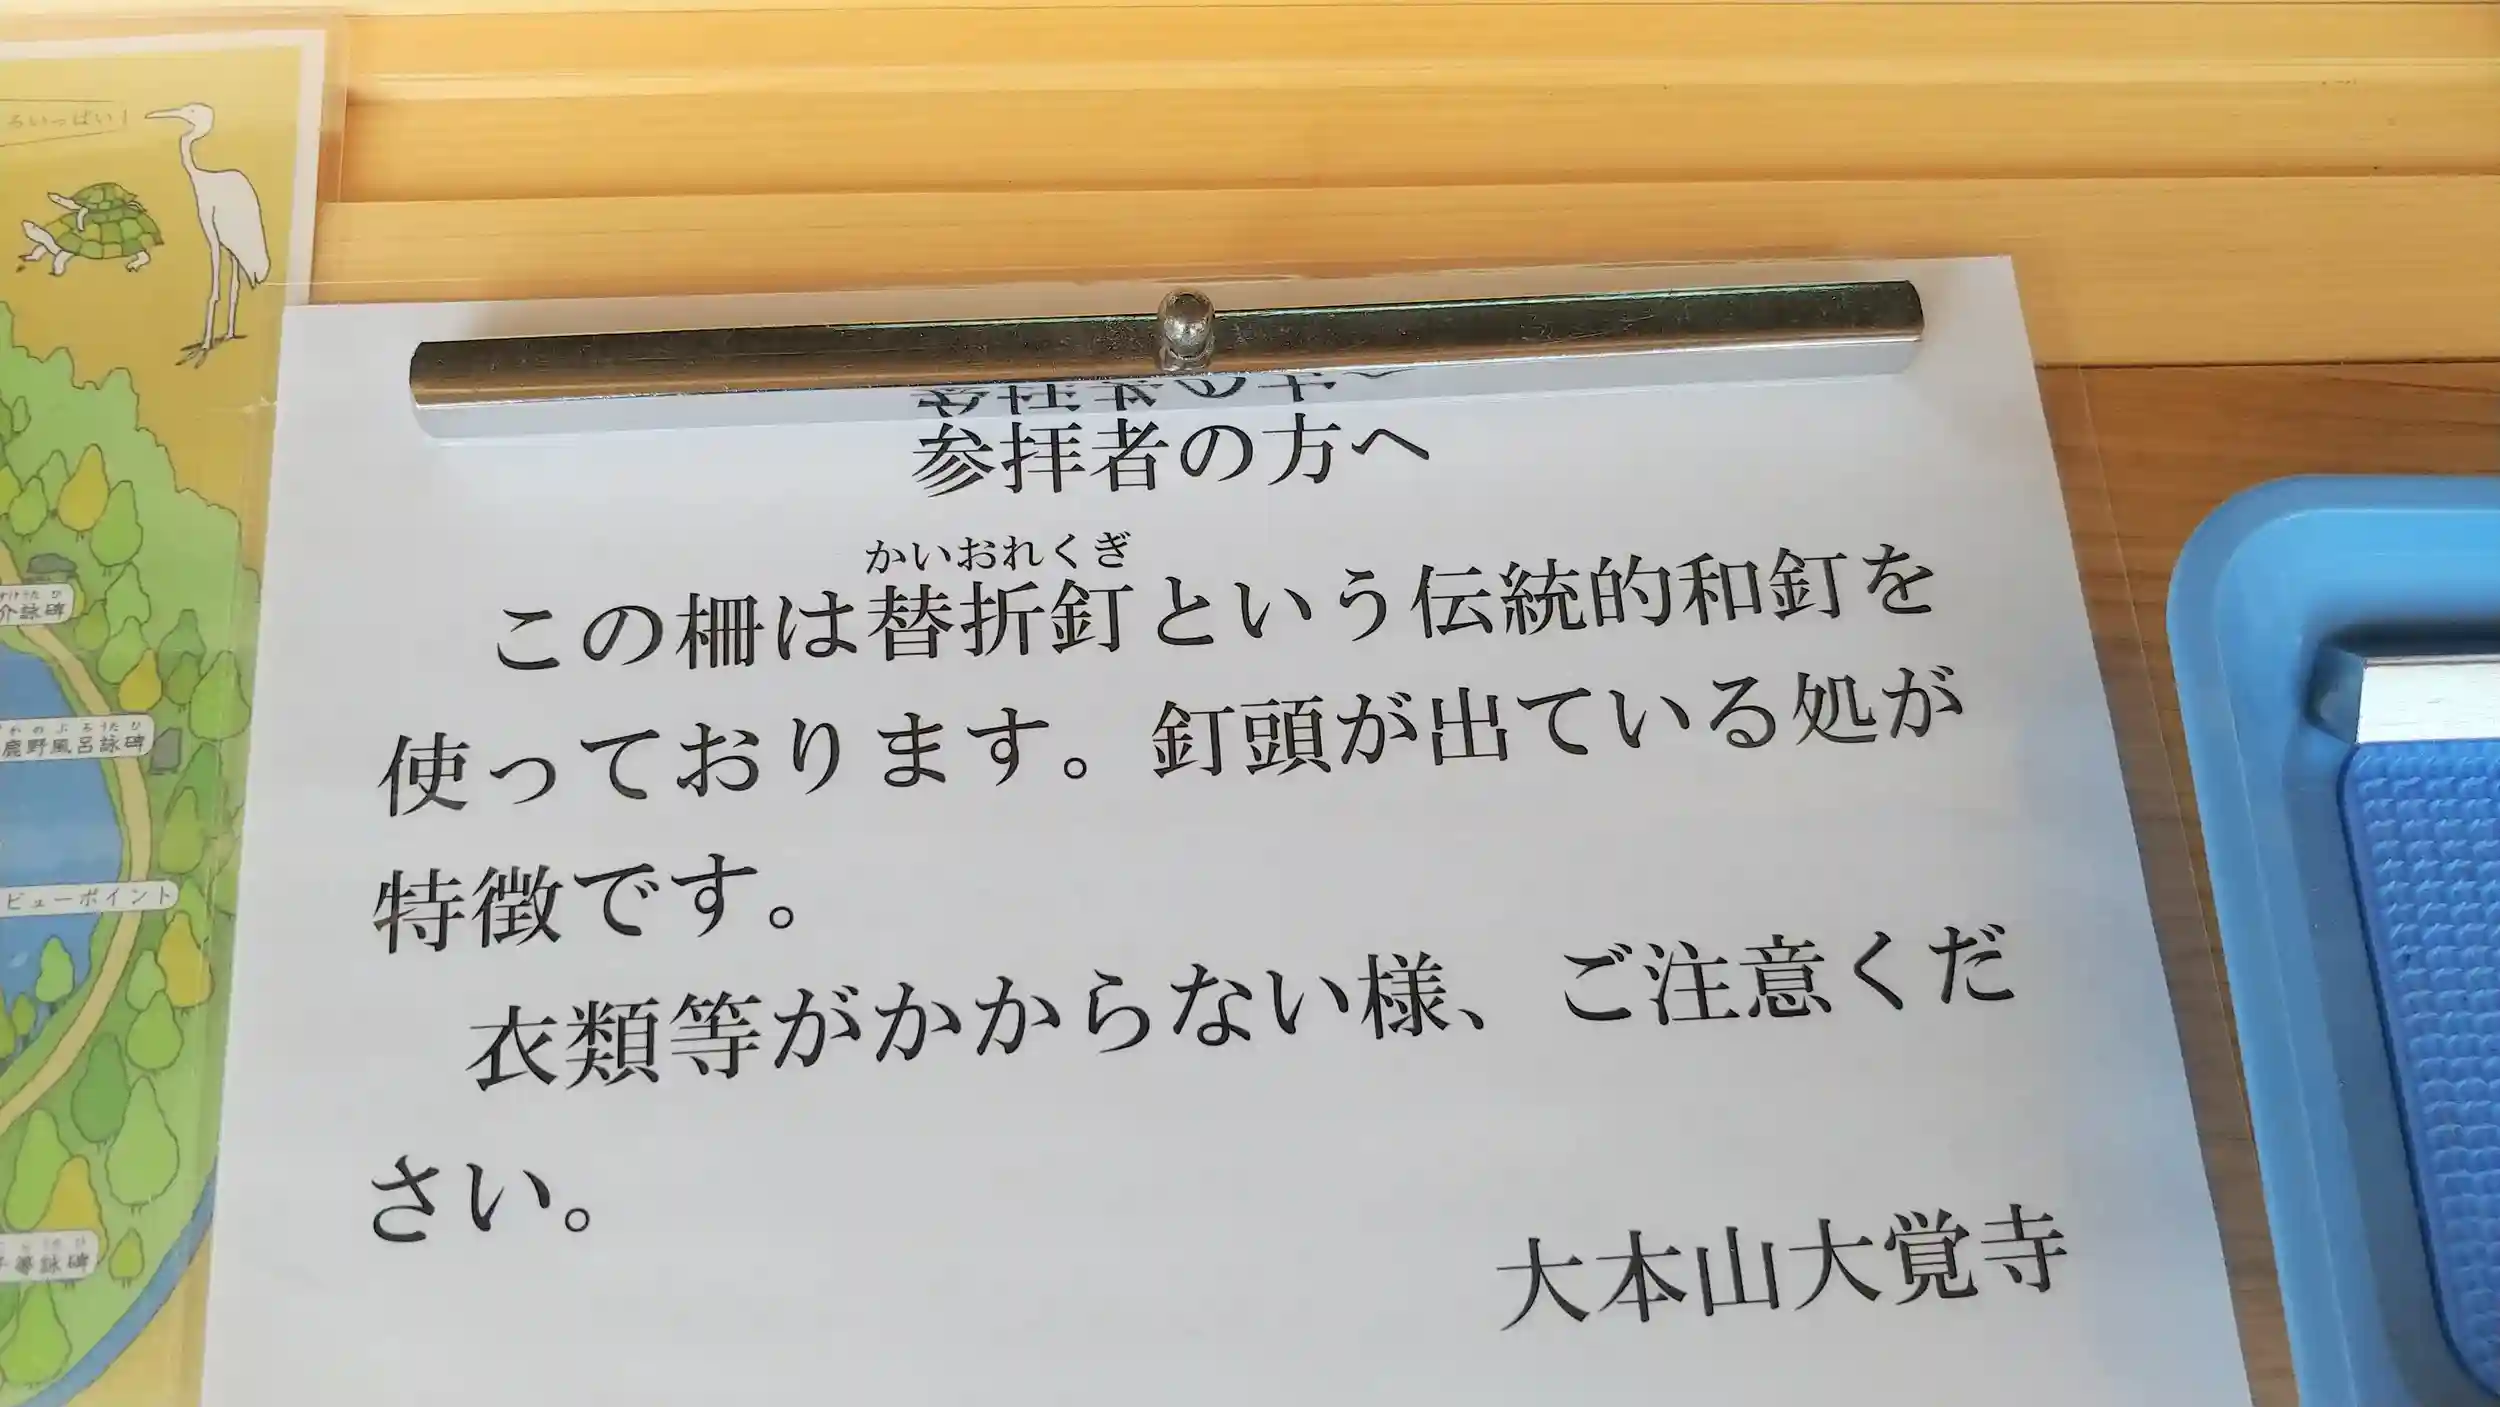 ろいっぱい！
介詠碑
鹿野風呂詠碑
ビューポイント
詠碑
参拝者の方へ
かいおれくぎ
この柵は替折釘という伝統的和釘を
使っております。釘頭が出ている処が
特徴です。
衣類等がかからない様、ご注意くだ
さい。
大本山大覚寺